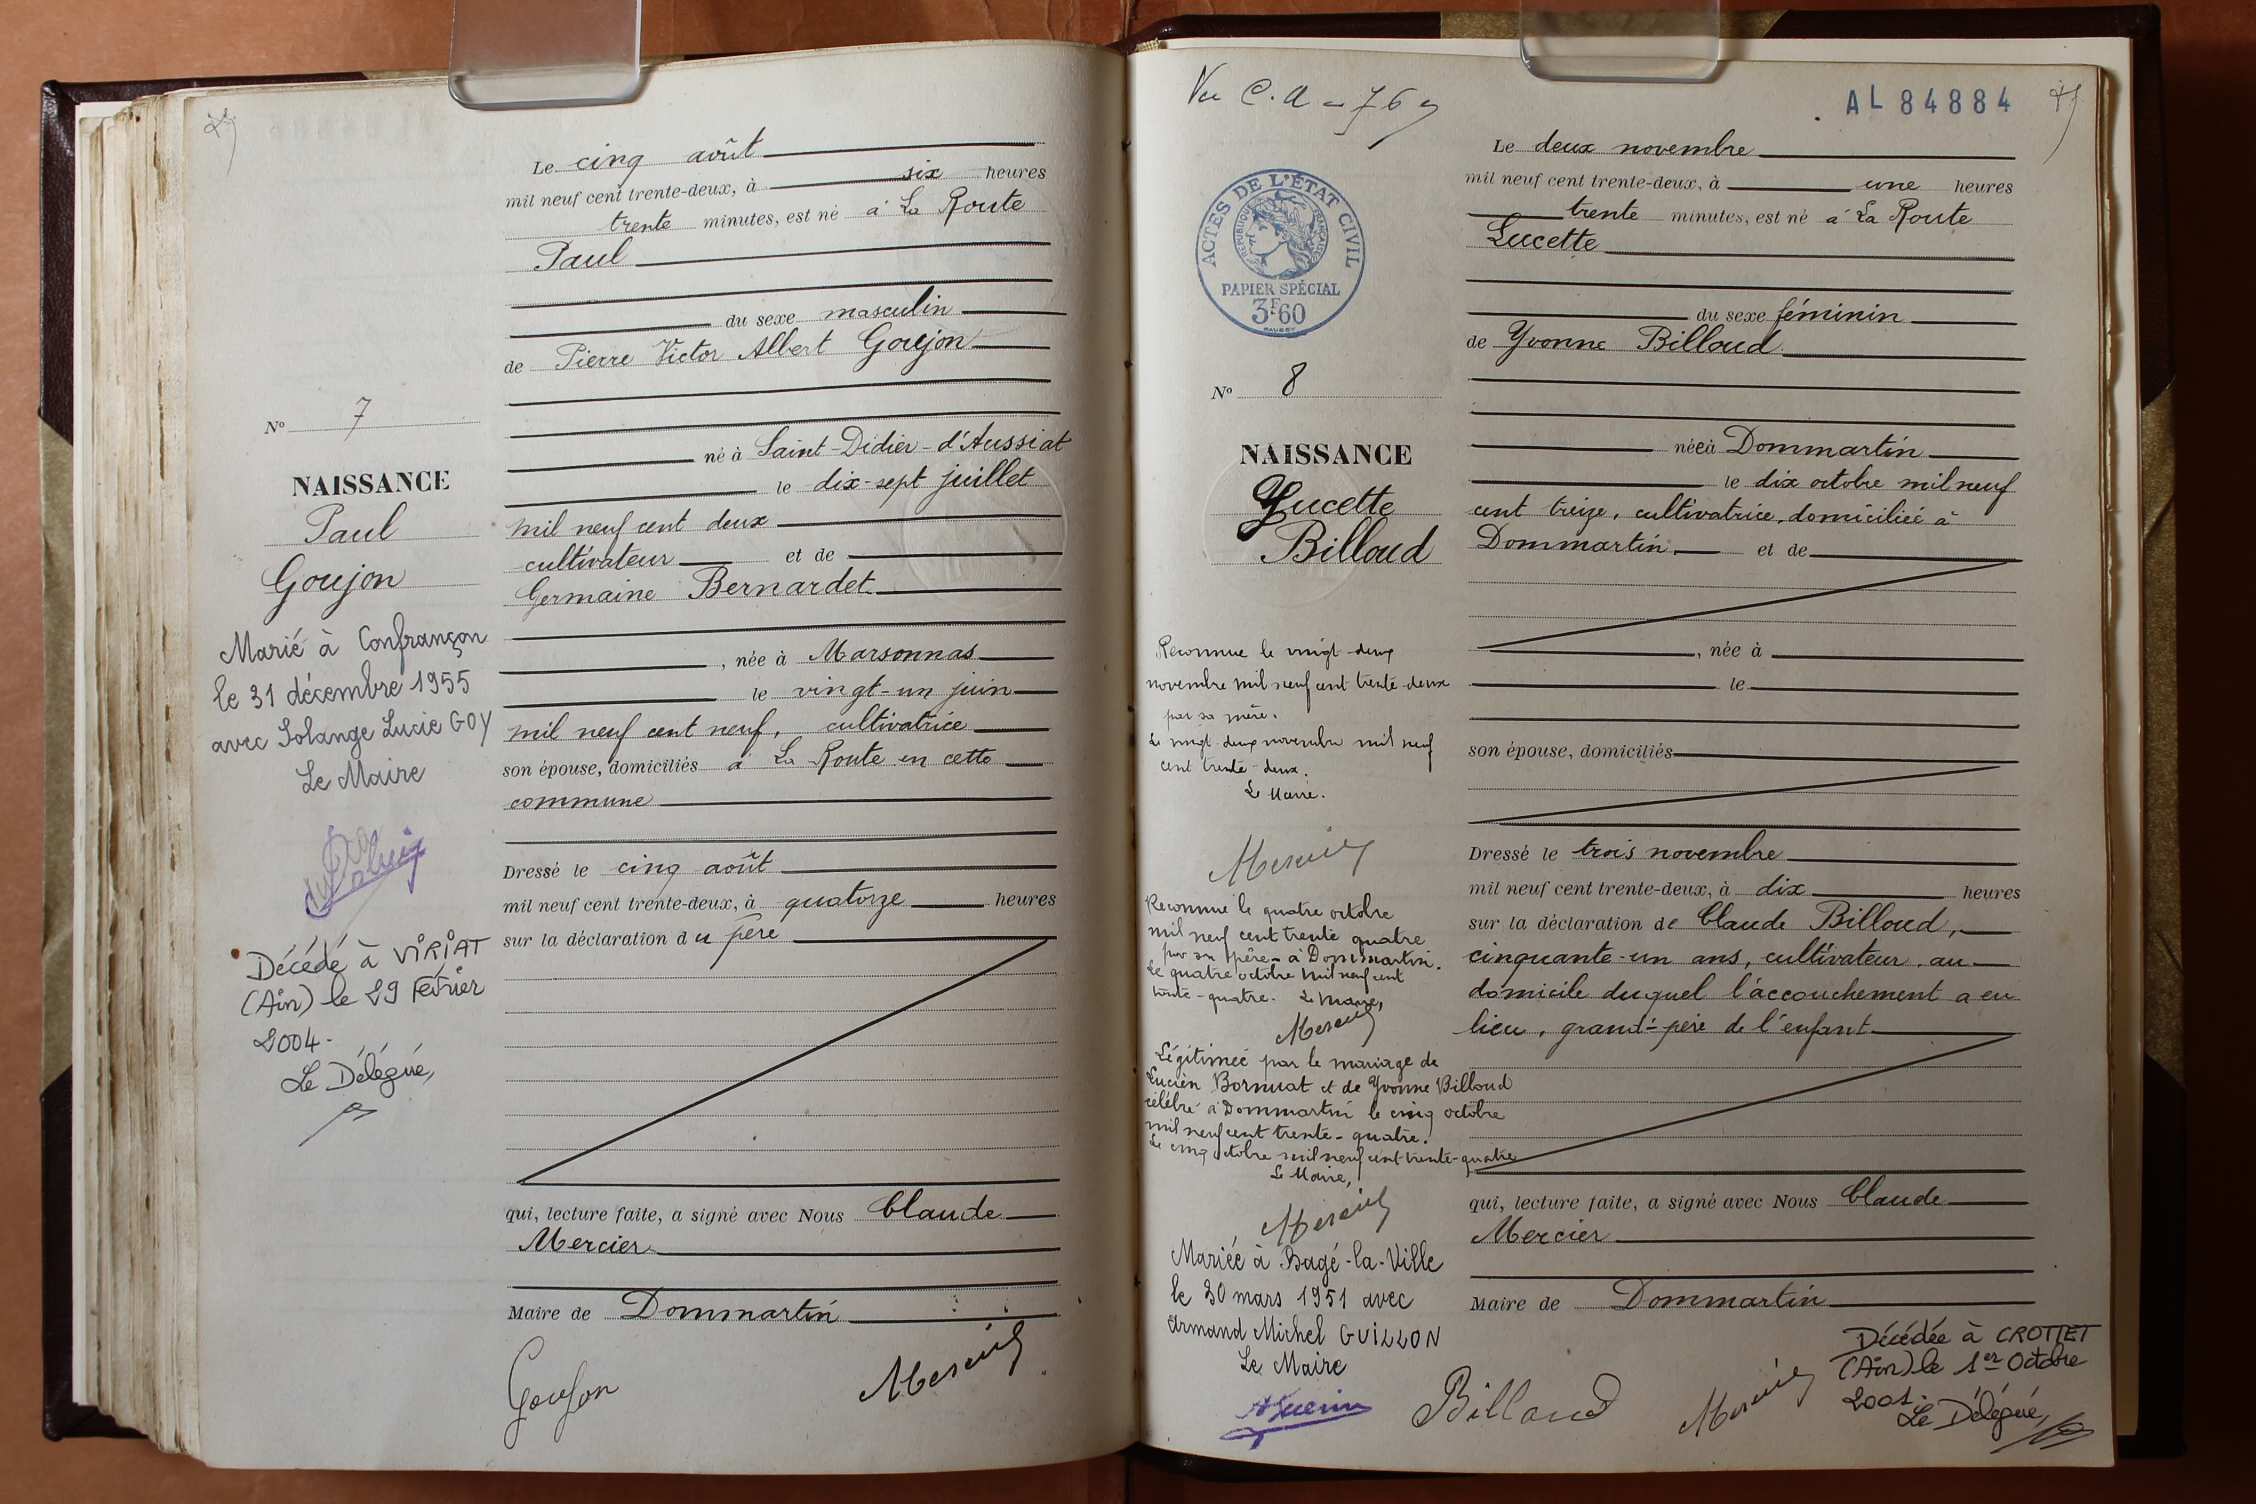 Le cinq août
mil neuf cent trente-deux, à six heures
trente minutes, est né à La Route
Paul
du sexe masculin
de Pierre Victor Albert Goujon
né à Saint-Didier-d'Aussiat
le dix-sept juillet
mil neuf cent deux
cultivateur et de
Germaine Bernardet
, née à Marsonnas
le vingt-un juin
mil neuf cent neuf, cultivatrice
son épouse, domiciliés à La Route en cette
commune
Dressé le cinq août
mil neuf cent trente-deux, à quatorze heures
sur la déclaration du père
qui, lecture faite, a signé avec Nous Claude
Mercier
Maire de Dommartin
Goujon Mercier
No 7
NAISSANCE
Paul
Goujon
Marié à Confrançon
le 31 décembre 1955
avec Solange Lucie GOY
Le Maire
Décédé à VIRIAT
(Ain) le 29 Février
2004.
Le Délégué,
Vu C.A
AL 84884
ACTES DE L'ÉTAT CIVIL
RÉPUBLIQUE FRANÇAISE
PAPIER SPÉCIAL
3F60
No 8
NAISSANCE
Lucette
Billoud
Reconnue le vingt-deux
novembre mil neuf cent trente-deux
par sa mère.
Le vingt-deux novembre mil neuf
cent trente-deux.
Le Maire.
Mercier
Reconnue le quatre octobre
mil neuf cent trente quatre
par son père à Dommartin.
Le quatre octobre mil neuf cent
trente-quatre. Le Maire,
Mercier
Légitimée par le mariage de
Lucien Bornuat et de Yvonne Billoud
célébré à Dommartin le cinq octobre
mil neuf cent trente-quatre.
Le cinq octobre mil neuf cent trente-quatre
Le Maire,
Mercier
Mariée à Bagé-la-Ville
le 30 mars 1951 avec
Armand Michel GUILLON
Le Maire
Le deux novembre
mil neuf cent trente-deux, à une heures
trente minutes, est né à La Route
Lucette
du sexe féminin
de Yvonne Billoud
née à Dommartin
le dix octobre mil neuf
cent treize, cultivatrice, domiciliée à
Dommartin et de
, née à
le
son épouse, domiciliés
Dressé le trois novembre
mil neuf cent trente-deux, à dix heures
sur la déclaration de Claude Billoud,
cinquante-un ans, cultivateur, au
domicile duquel l'accouchement a eu
lieu, grand-père de l'enfant
qui, lecture faite, a signé avec Nous Claude
Mercier
Maire de Dommartin
Billoud Mercier
Décédée à CROTTET
(Ain) le 1er Octobre
2001.
Le Délégué,